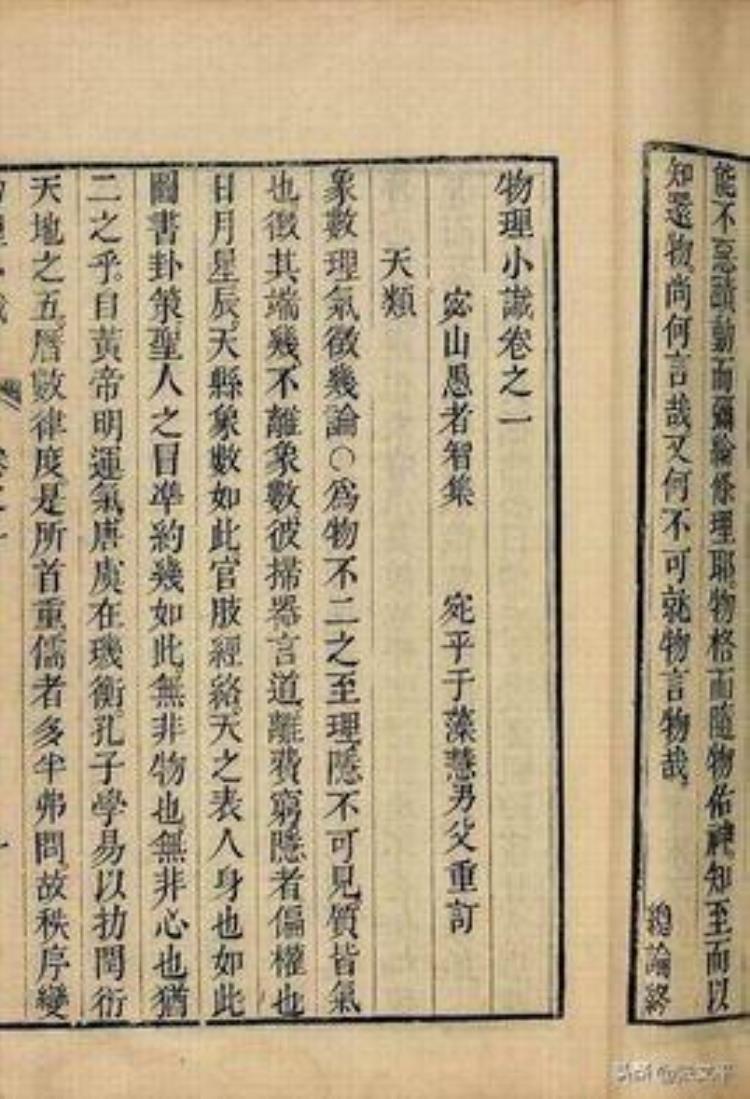 能不惡賾動而彌綸條理耶物格而隨物佑神知至而以
知還物尚何言哉又何不可就物言物哉
總論終
物理小識卷之一
宓山愚者智集 宛平于藻慧男父重訂
天類
象數理氣徵幾論○為物不二之至理隱不可見質皆氣
也徵其端幾不離象數彼掃器言道離費窮隱者偏權也
日月星辰天縣象數如此官肢經絡天之表人身也如此
圖書卦策聖人之冒準約幾如此無非物也無非心也猶
二之乎自黃帝明運氣唐虞在璣衡孔子學易以扐閏衍
天地之五曆數律度是所首重儒者多半弗問故秩序變